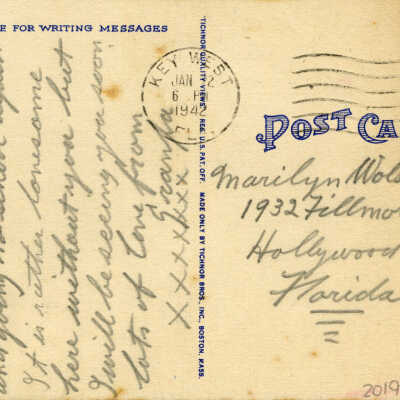 E FOR WRITING MESSAGES
going
It is rather lonesome
here without you but
I will be seeing you soon
Lots of love from
Grandpa
xxxxxxx
TICHNOR QUALITY VIEWS REG. U.S. PAT. OFF. MADE ONLY BY TICHNOR BROS., INC., BOSTON, MASS.
KEY WEST
JAN 2
6 P
1942
POST CA
Marilyn Wol
1932 Fillmo
Hollywood
Florida
2019